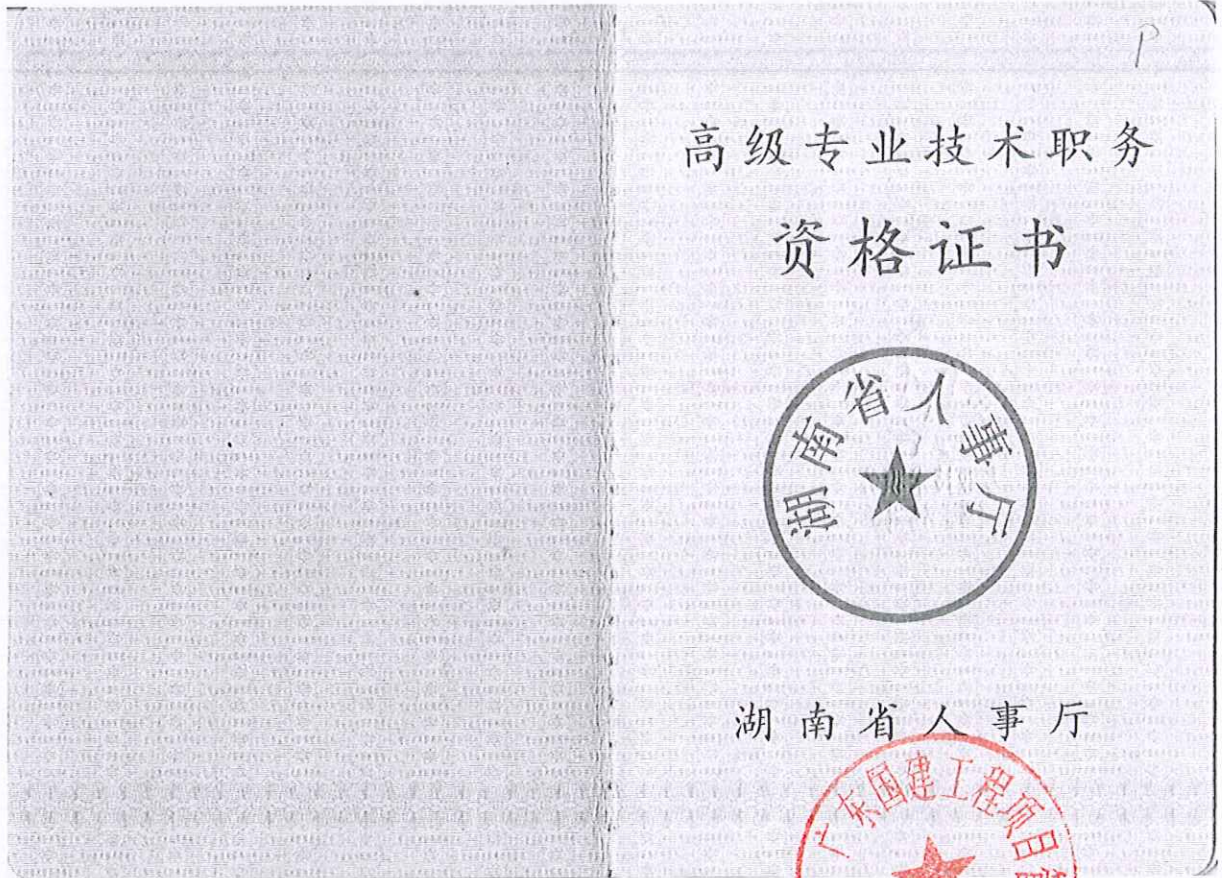 P
高级专业技术职务
资格证书
湖南省人事厅
湖南省人事厅
广东国建工程项目